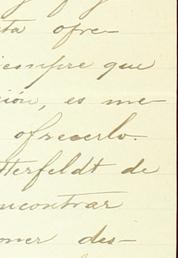 ta ofre-
iempre que
ión, es me-
ofrecerlo.
tterfeldt de
ncontrar
oner des-